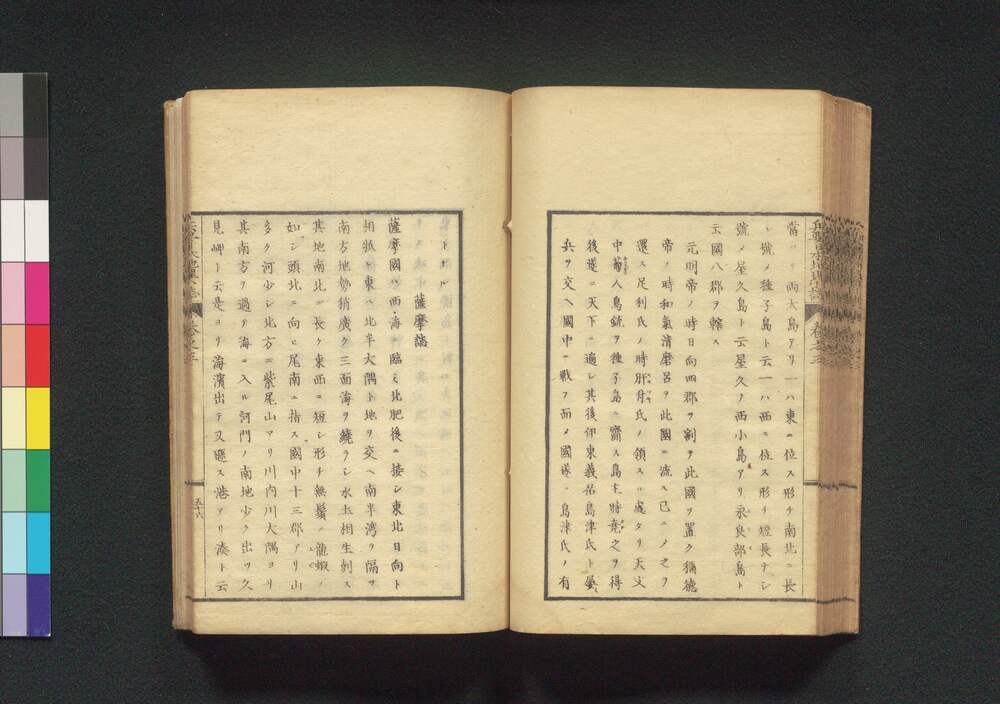 當ハリ兩大島アリ一ハ東ニ位ス形チ南北ニ長
シ號メ種子島ト云一ハ西ニ位ス形チ短長ナシ
號メ屋久島ト云屋久ノ西小島アリ永良部島ト
云國八郡ヲ轄ス
元明帝ノ時日向四郡ヲ割テ此國ヲ置ク稱德
帝ノ時和氣淸磨呂ヲ此國ニ流ス已ニノ之ヲ
還ス足利氏ノ時肝付氏ノ領スル處タリ天文
中葡人鳥銃ヲ種子島ニ齎ス島主時堯之ヲ得
後遂ニ天下ニ遍シ其後伊東義祐島津氏ト
兵ヲ交ヘ國中ニ戰フ而メ國遂ニ島津氏ノ有
トナル
薩摩誌
薩摩國ハ西海ニ臨ミ北肥後ニ接シ東北日向ト
相抵ル東ハ北半大隅ト地ヲ交ヘ南半湾ヲ隔ツ
南方地勢稍廣ク三面海ヲ繞ラシ水土相生剋ス
其地南北ニ長ク東西ニ短シ形チ無鬚ノ龍蝦ノ
如シ頭北ニ向ヒ尾南ニ指ス國中十三郡アリ山
多ク河少シ北方ニ紫尾山アリ川内川大隅ヨリ
其南方ヲ過テ海ニ入ル河門ノ南地少ク出ツ久
見岬ト云是ヨリ海濱出テ又匯ス港アリ湊ト云
五十六